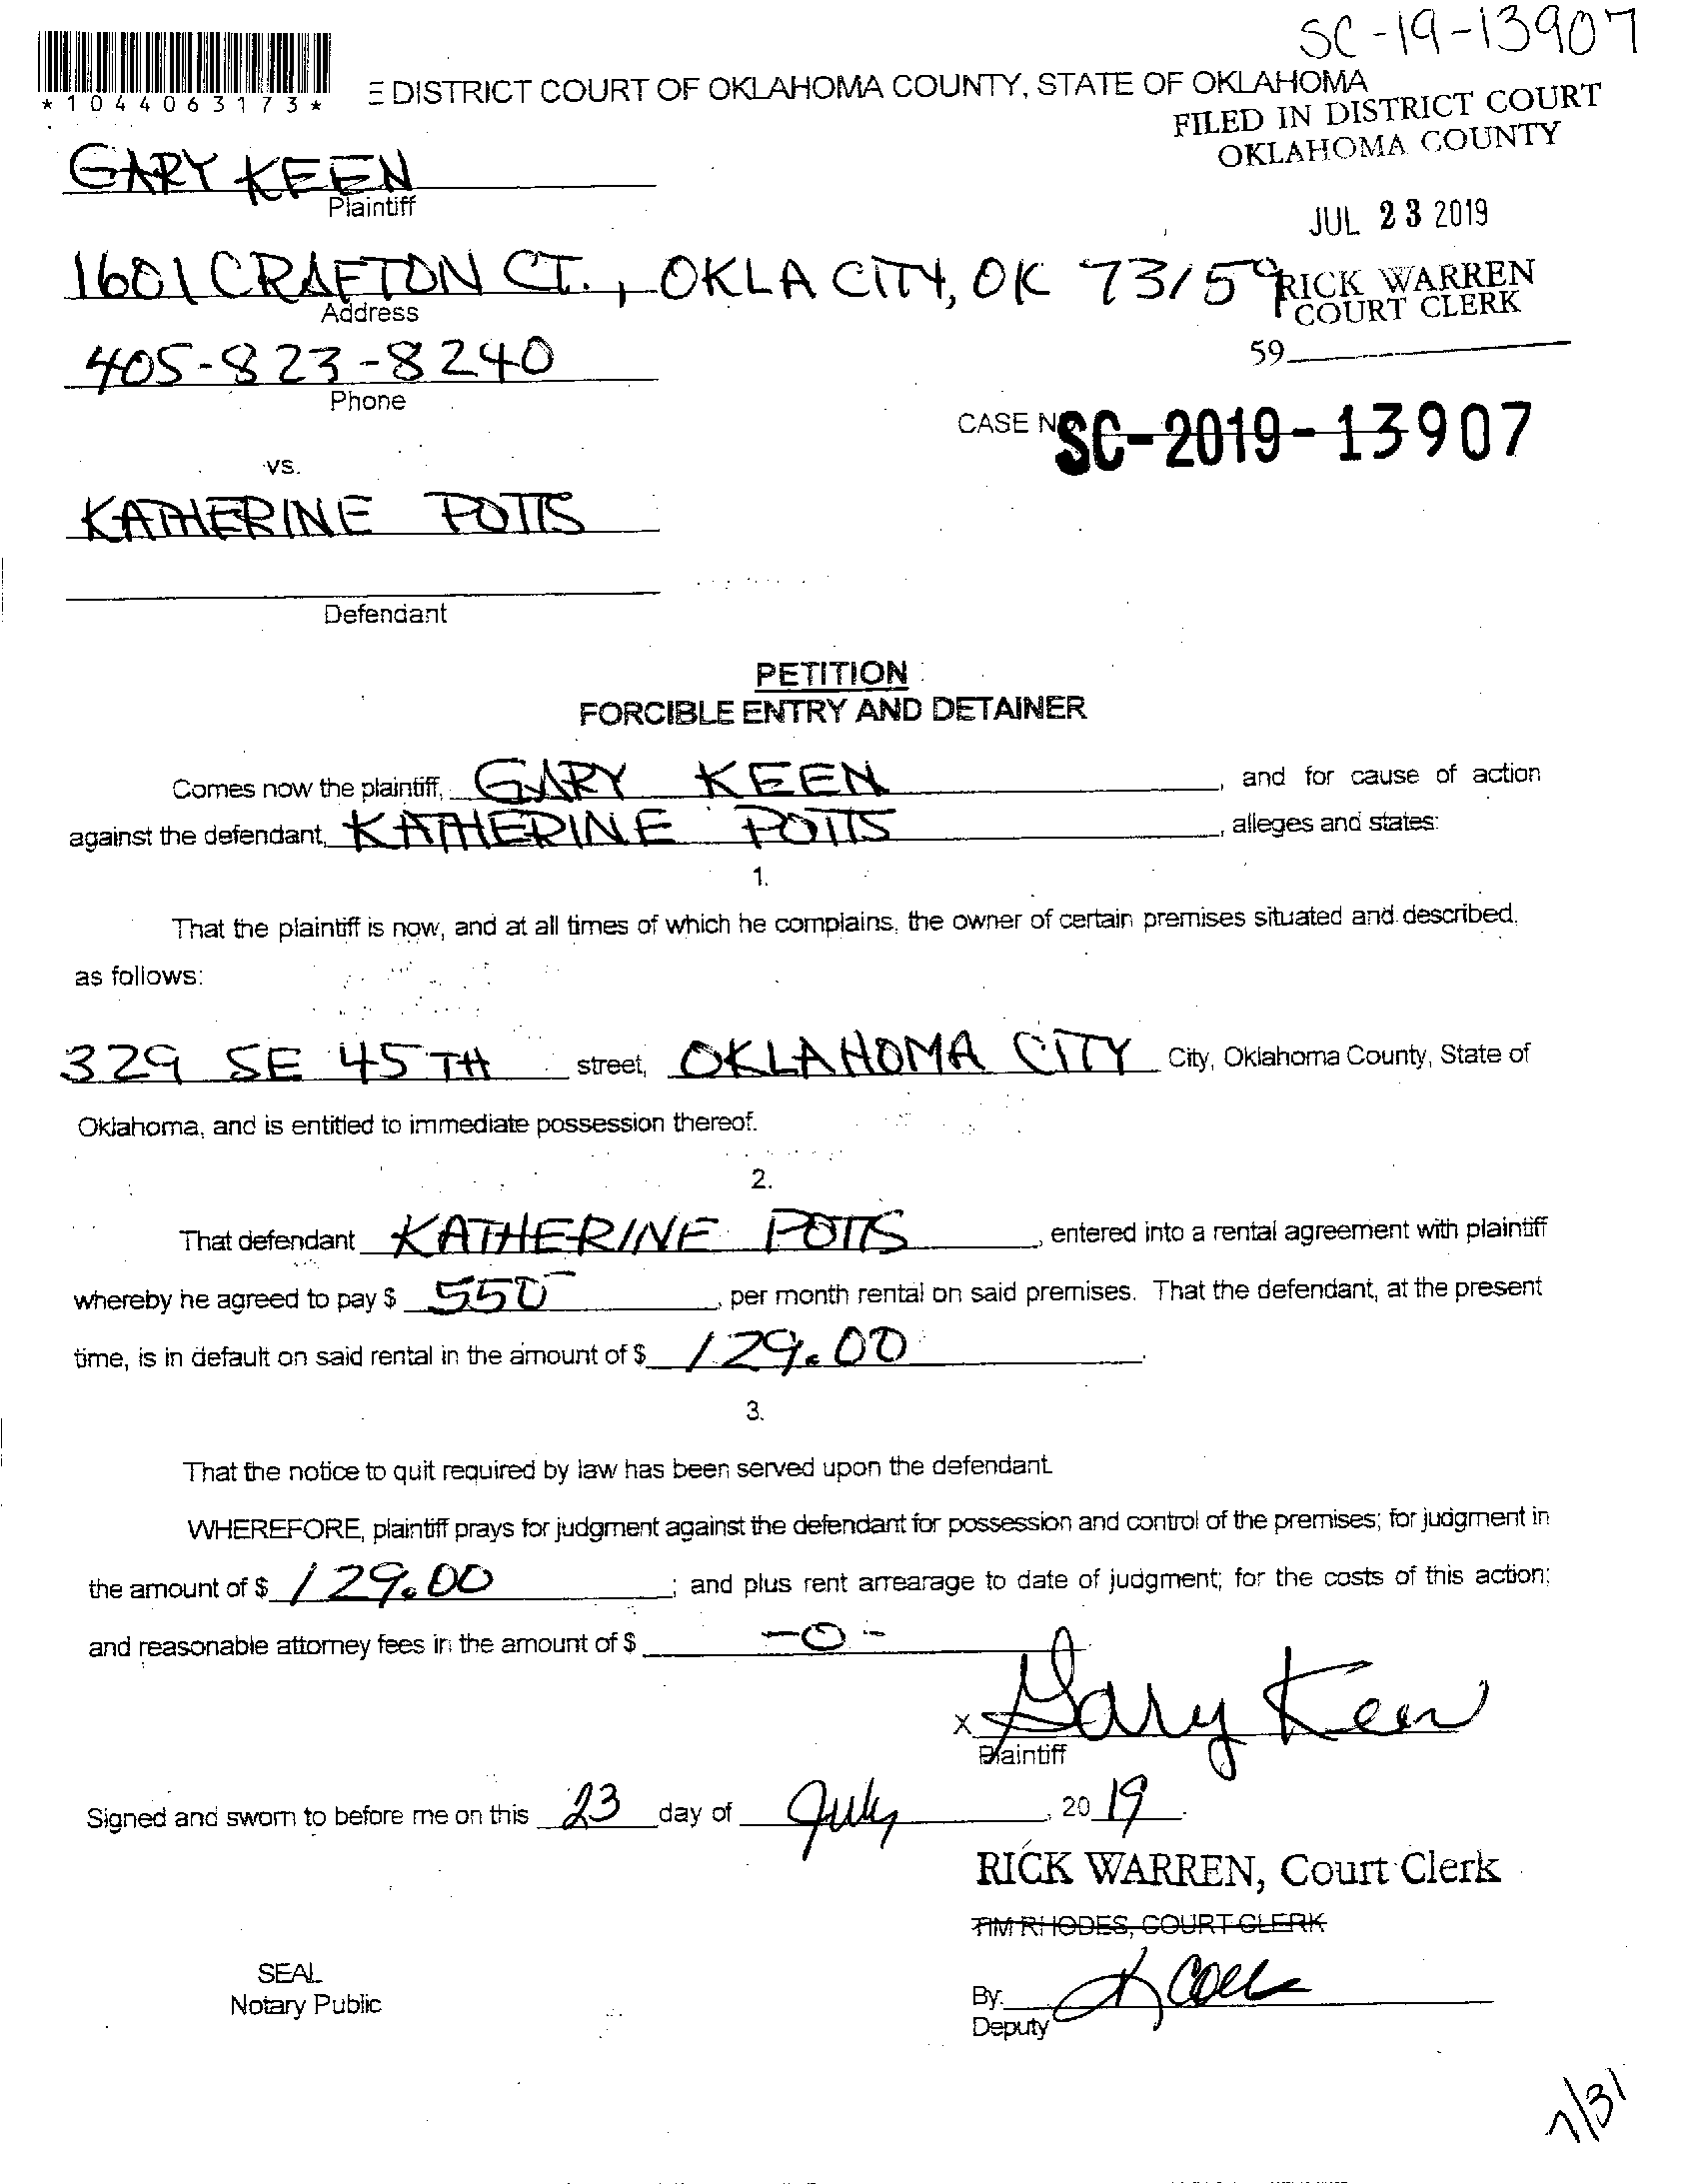 SC-19-13907
*1044063173*
E DISTRICT COURT OF OKLAHOMA COUNTY, STATE OF OKLAHOMA
FILED IN DISTRICT COURT
OKLAHOMA COUNTY
GARY KEEN
Plaintiff
JUL 23 2019
1601 CRAFTON CT., OKLA CITY, OK 73159
Address
RICK WARREN
COURT CLERK
405-823-8240
Phone
59
CASE NO
SC-2019-13907
vs.
KATHERINE POTTS
Defendant
PETITION
FORCIBLE ENTRY AND DETAINER
Comes now the plaintiff, GARY KEEN, and for cause of action
against the defendant, KATHERINE POTTS, alleges and states:
1.
That the plaintiff is now, and at all times of which he complains, the owner of certain premises situated and described,
as follows:
329 SE 45TH street, OKLAHOMA CITY City, Oklahoma County, State of
Oklahoma, and is entitled to immediate possession thereof.
2.
That defendant KATHERINE POTTS, entered into a rental agreement with plaintiff
whereby he agreed to pay $ 550, per month rental on said premises. That the defendant, at the present
time, is in default on said rental in the amount of $ 129.00.
3.
That the notice to quit required by law has been served upon the defendant.
WHEREFORE, plaintiff prays for judgment against the defendant for possession and control of the premises; for judgment in
the amount of $ 129.00; and plus rent arrearage to date of judgment; for the costs of this action;
and reasonable attorney fees in the amount of $ -0-
X Gary Keen
Plaintiff
Signed and sworn to before me on this 23 day of July, 2019.
RICK WARREN, Court Clerk
TIM RHODES, COURT CLERK
SEAL
Notary Public
By:
Deputy
7/31